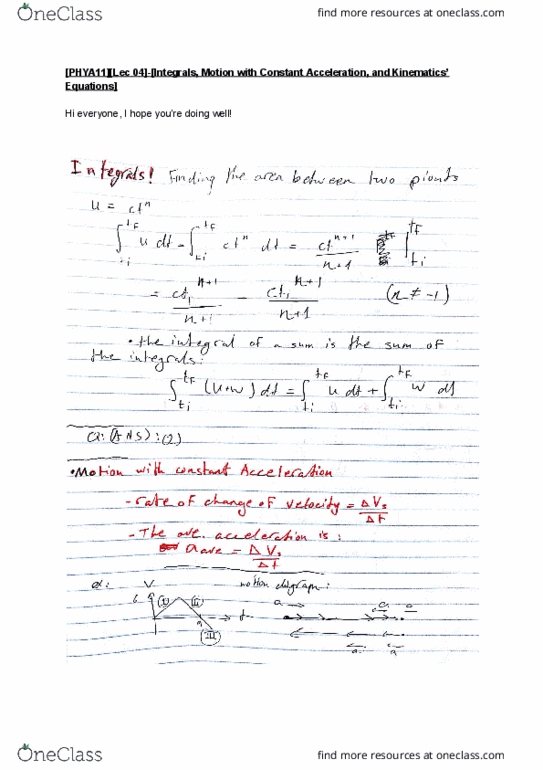 OneClass
find more resources at oneclass.com
[PHYA11][Lec 04]-[Integrals, Motion with Constant Acceleration, and Kinematics'
Equations]
Hi everyone, I hope you're doing well!
Integrals! Finding the area between two pionts
u = ct^n
∫_{ti}^{tF} u dt = ∫_{ti}^{tF} ct^n dt = ct^{n+1}/n+1 |_{ti}^{tF}
= ct^{n+1}/n+1 - ct_i^{n+1}/n+1 (n ≠ -1)
• the integral of a sum is the sum of
the integrals:
∫_{ti}^{tF} (u+w) dt = ∫_{ti}^{tF} u dt + ∫_{ti}^{tF} w dt
Q: (ANS): (2)
• Motion with constant Acceleration
- rate of change of velocity = ΔVs/Δt
- The ave. acceleration is:
a ave = ΔVs/Δt
V motion diagram:
6 (I) (II) t a a a
9 (III)
a a
OneClass
find more resources at oneclass.com